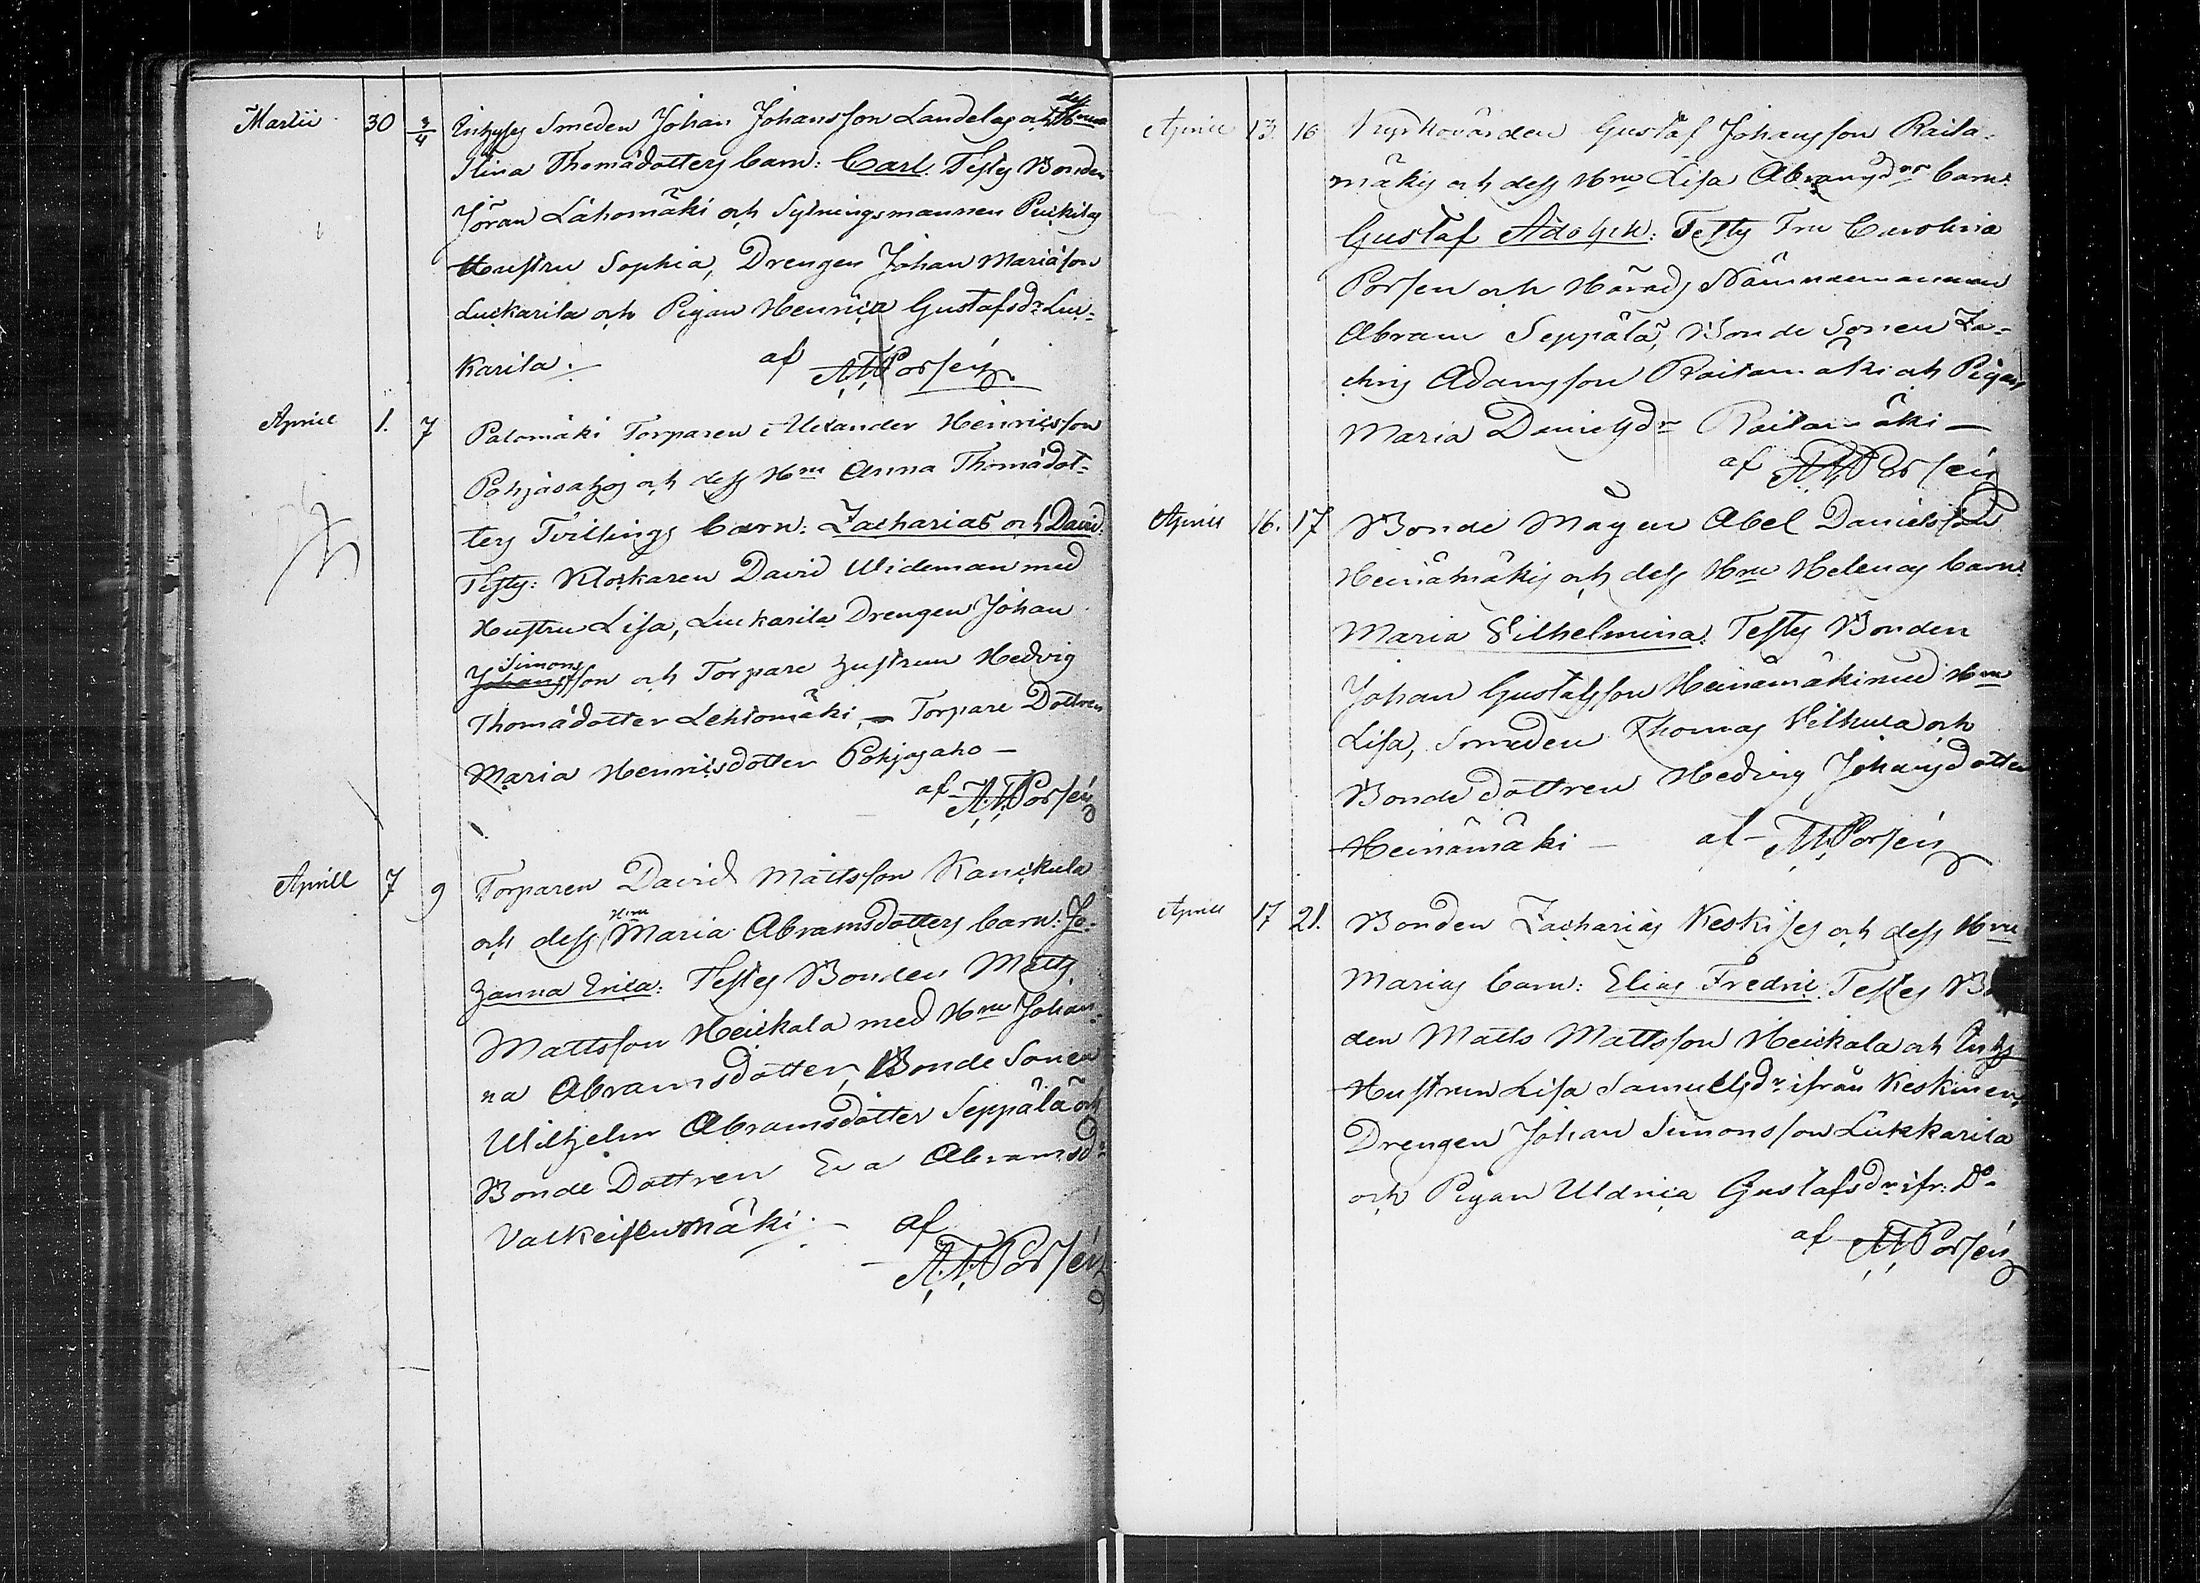 Martii 30 3/4 Inhyses Smeden Johan Johansson Landelas och dess Hustrus
Stina Thomædotters barn: Carl. Testes Bonden
Jöran Lähomäki och Sytningsmannen Puikilas
Hustru Sophia, Drengen Johan Mariäson
Luckarila och Pigan Henrica Gustafsdr Luc-
karila. af A.M. Porsén
Aprill 1. 7 Palomäki Torparen Alexander Henricsson
Pohjasahos och dess Hru Anna Thomædot-
ters Tvillings barn: Zacharias och David:
Testes: Klockaren David Wideman med
Hustru Lisa, Luckarila Drengen Johan
Simonsson och Torpare hustrun Hedvig
Thomædotter Lehtomäki, Torpare Dottren
Maria Henricsdotter Pohjasaho —
af A.M. Porsén
Aprill 7 9 Torparen David Mattsson Kanckula
och dess Hru Maria Abramsdotters barn: Jo-
hanna Erica: Testes Bonden Matts
Mattsson Heickala med Hru Johan-
na Abramsdotter, Bonde Sonen
Wilhelm Abramsdotter Seppälä och
Bonde Dottren Eva Abramsdr
Valkeisenmäki. — af
A.M. Porsén
Aprill 13. 16 Kyrkovärden Gustaf Johansson Raita-
mäkis och dess Hru Lisa Abramsdrs barn:
Gustaf Adolph: Testes Fru Carolina
Porsen och Härads Nämndemannen
Abram Seppälä, Bonde Sonen Za-
chris Adamsson Raitamäki och Pigan
Maria Danielsdr Raitamäki —
af A.M. Porsén
Aprill 16. 17 Bonde Mågen Abel Danielsson
Heinämäkis och dess Hru Helenas barn:
Maria Vilhelmina: Testes Bonden
Johan Gustafsson Heinämäki med Hru
Lisa, Smeden Thomas Vilhula och
Bonde dottren Hedvig Johansdotter
Heinämäki — af A.M. Porsén
Aprill 17 21. Bonden Zacharias Keskises och dess Hru
Marias barn: Elias Fredric Testes Bon-
den Matts Mattsson Heickala och Inhs
Hustrun Lisa Samuelsdr ifrån Keskinen,
Drengen Johan Simonsson Lukkarila
och Pigan Uldrica Gustafsdr ifr: Do
af A.M. Porsén